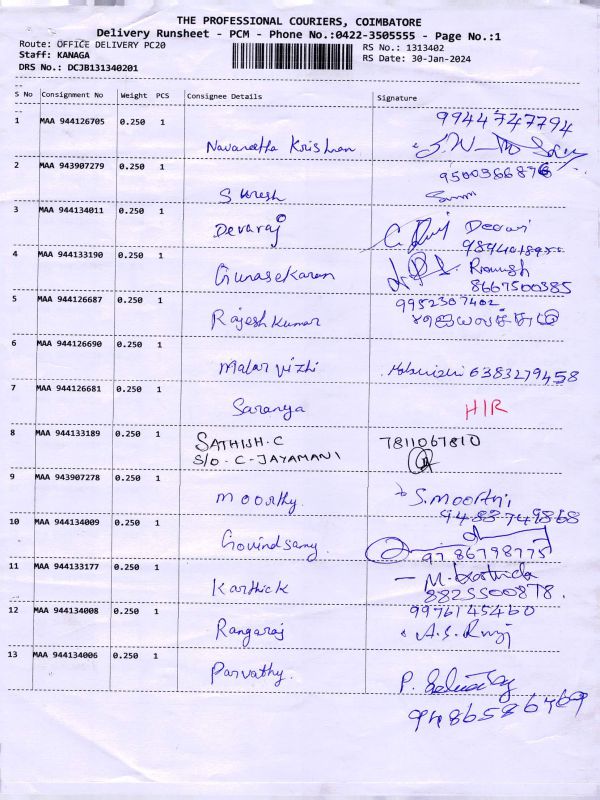 THE PROFESSIONAL COURIERS, COIMBATORE
Delivery Runsheet - PCM - Phone No.:0422-3505555 - Page No.:1
Route: OFFICE DELIVERY PC20 RS No.: 1313402
Staff: KANAGA RS Date: 30-Jan-2024
DRS No.: DCJB131340201
S No Consignment No Weight PCS Consignee Details Signature
1 MAA 944126705 0.250 1 9944747794
Navaneetha Krishnan
2 MAA 943907279 0.250 1 9500366876
Suresh
3 MAA 944134011 0.250 1
Devaraj Devaraj
4 MAA 944133190 0.250 1
Gunasekaran Ramesh
8667500385
5 MAA 944126687 0.250 1 9952307402
Rajesh Kumar
6 MAA 944126690 0.250 1
Malar vizhi 6383279458
7 MAA 944126681 0.250 1
Saranya HIR
8 MAA 944133189 0.250 1 SATHISH.C 7811067810
S/O - C-JAYAMANI
9 MAA 943907278 0.250 1
Moorthy S.Moorthi,
9488749868
10 MAA 944134009 0.250 1
Govindsamy 9786798775
11 MAA 944133177 0.250 1
Karthick M. Karthick
8825500878.
12 MAA 944134008 0.250 1 9976145460
Rangaraj A.S. Rangaraj
13 MAA 944134006 0.250 1
Parvathy. P.
9486586769